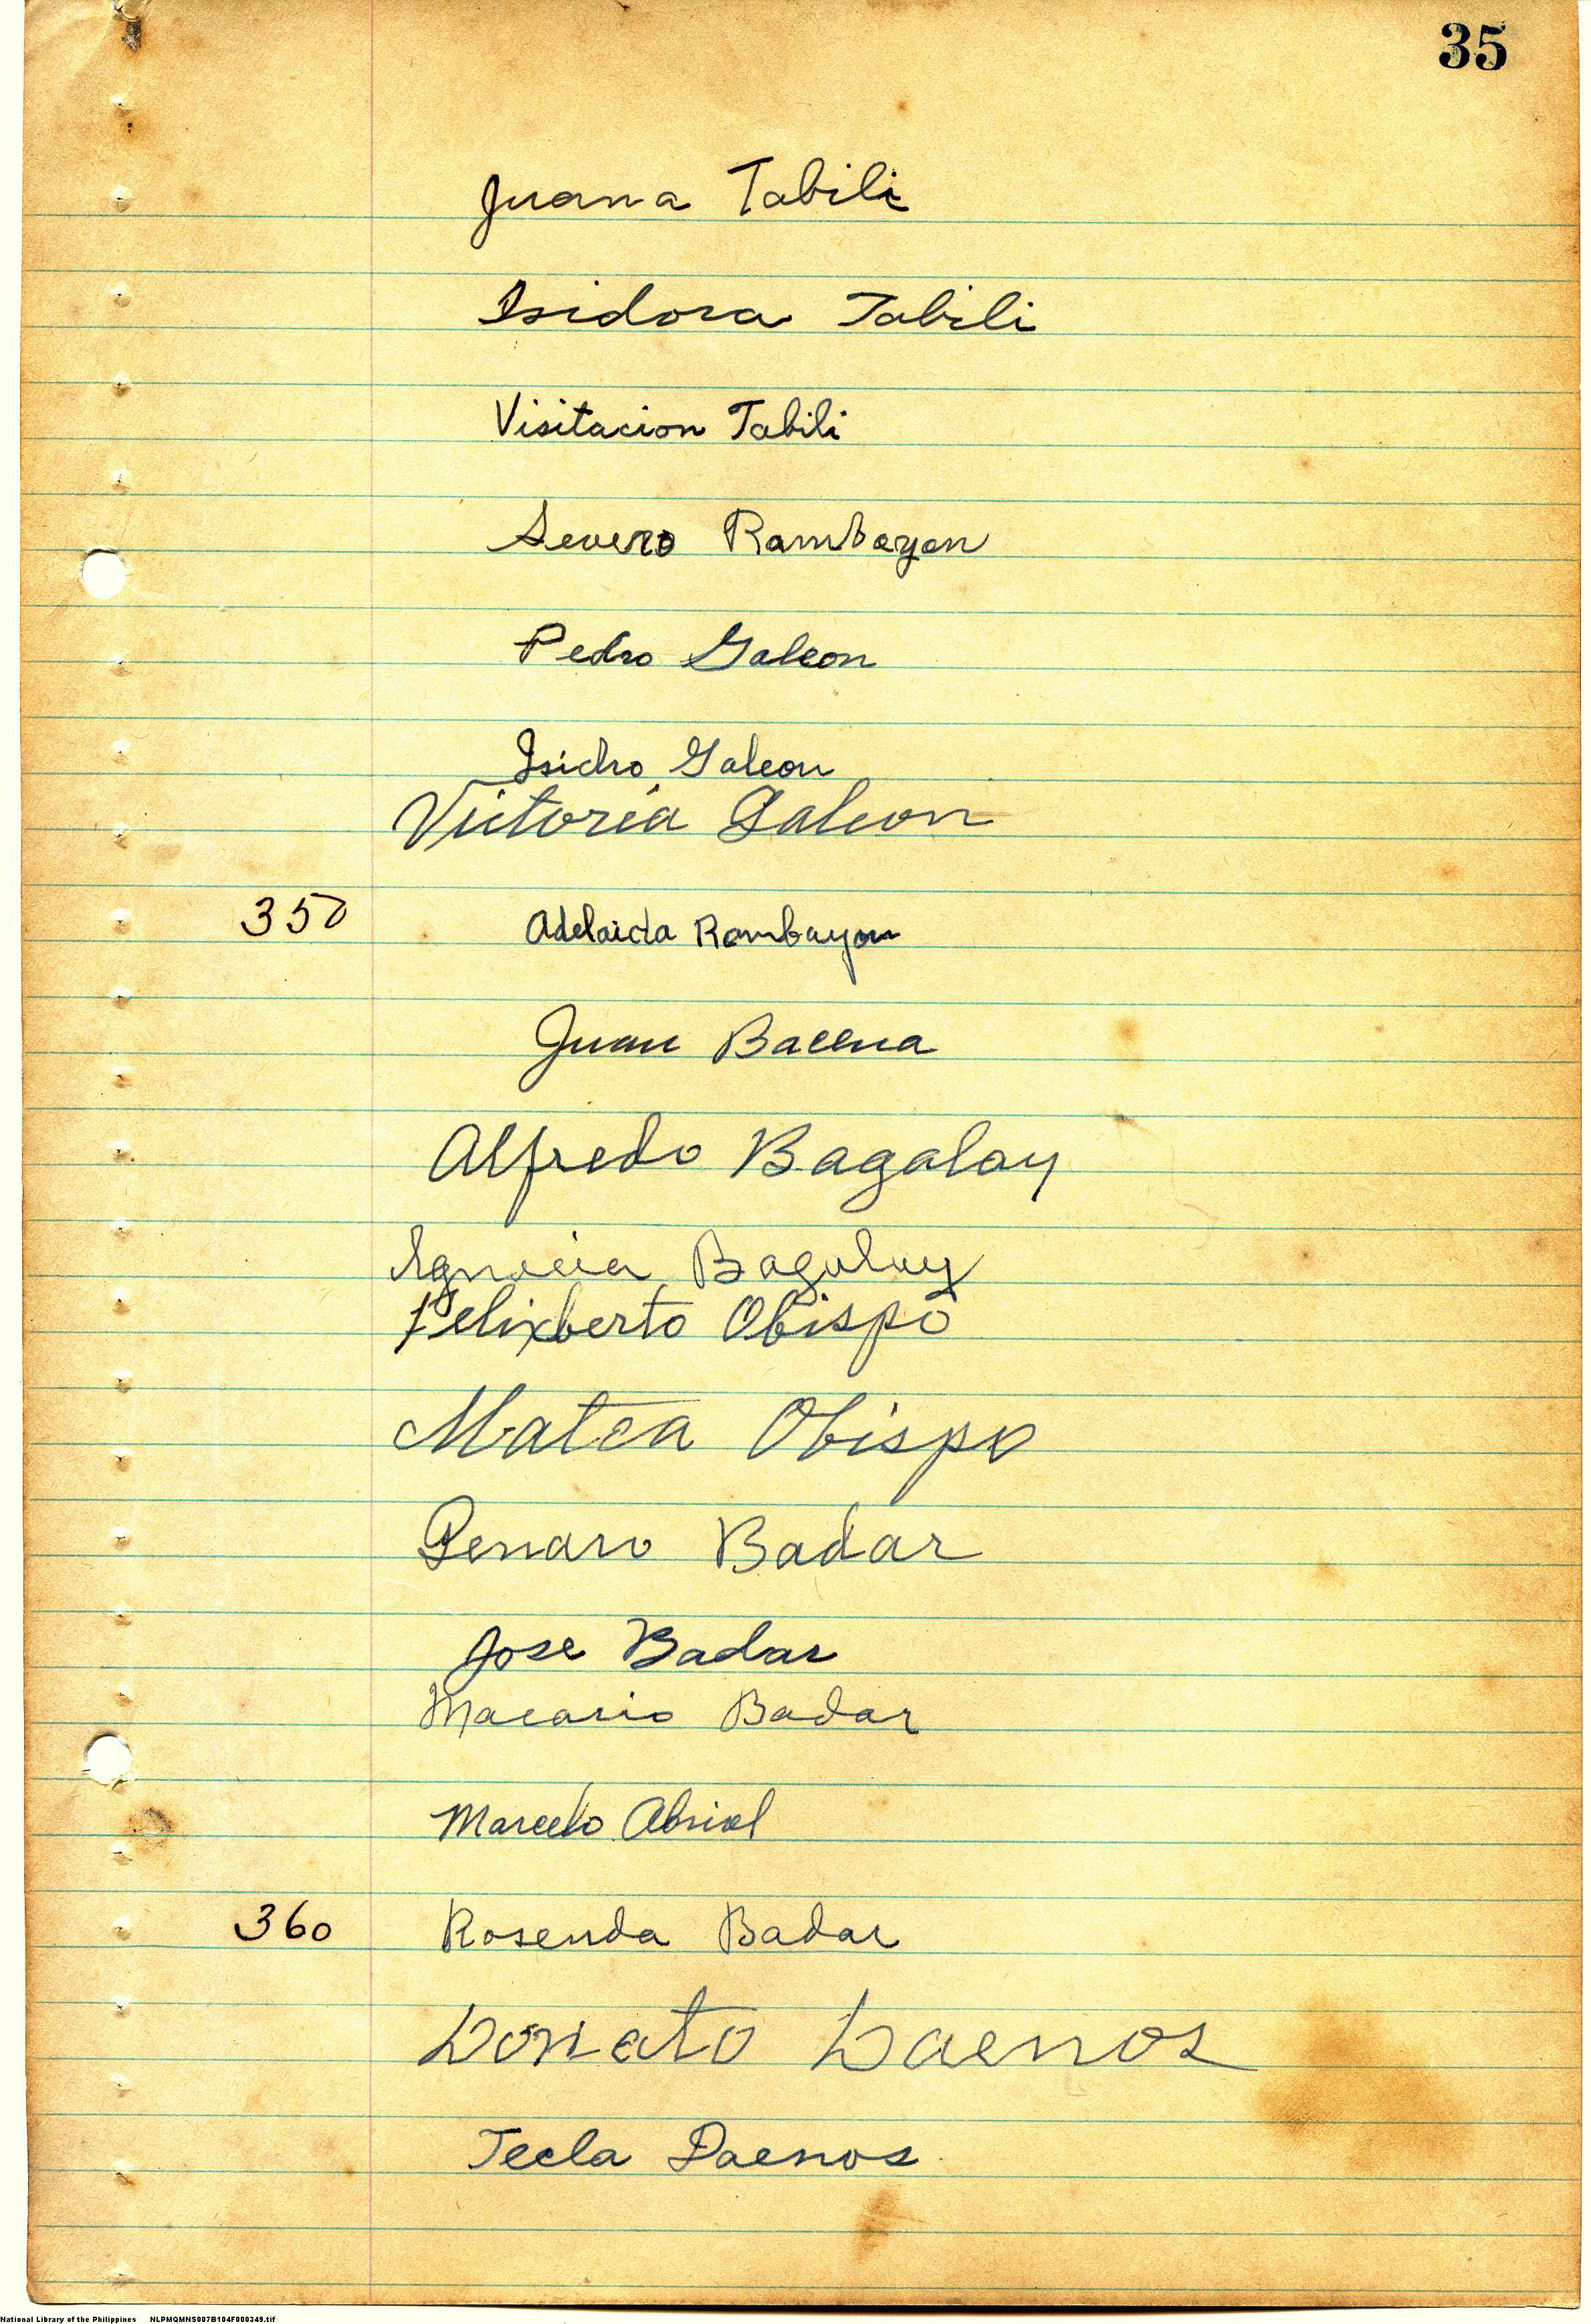 35
Juana Tabili
Isidora Tabili
Visitacion Tabili
Severo Rambayon
Pedro Galeon
Isidro Galeon
Victoria Galeon
350 Adelaida Rambayon
Juan Baccua
Alfredo Bagalay
Ignacia Bagalay
Felixberto Obispo
Matea Obispo
Genaro Badar
Jose Badar
Macario Badar
Marcelo Abriol
360 Rosenda Badar
Donato Daenos
Tecla Daenos
National Library of the Philippines NLPMQMNS007B104F000349.tif